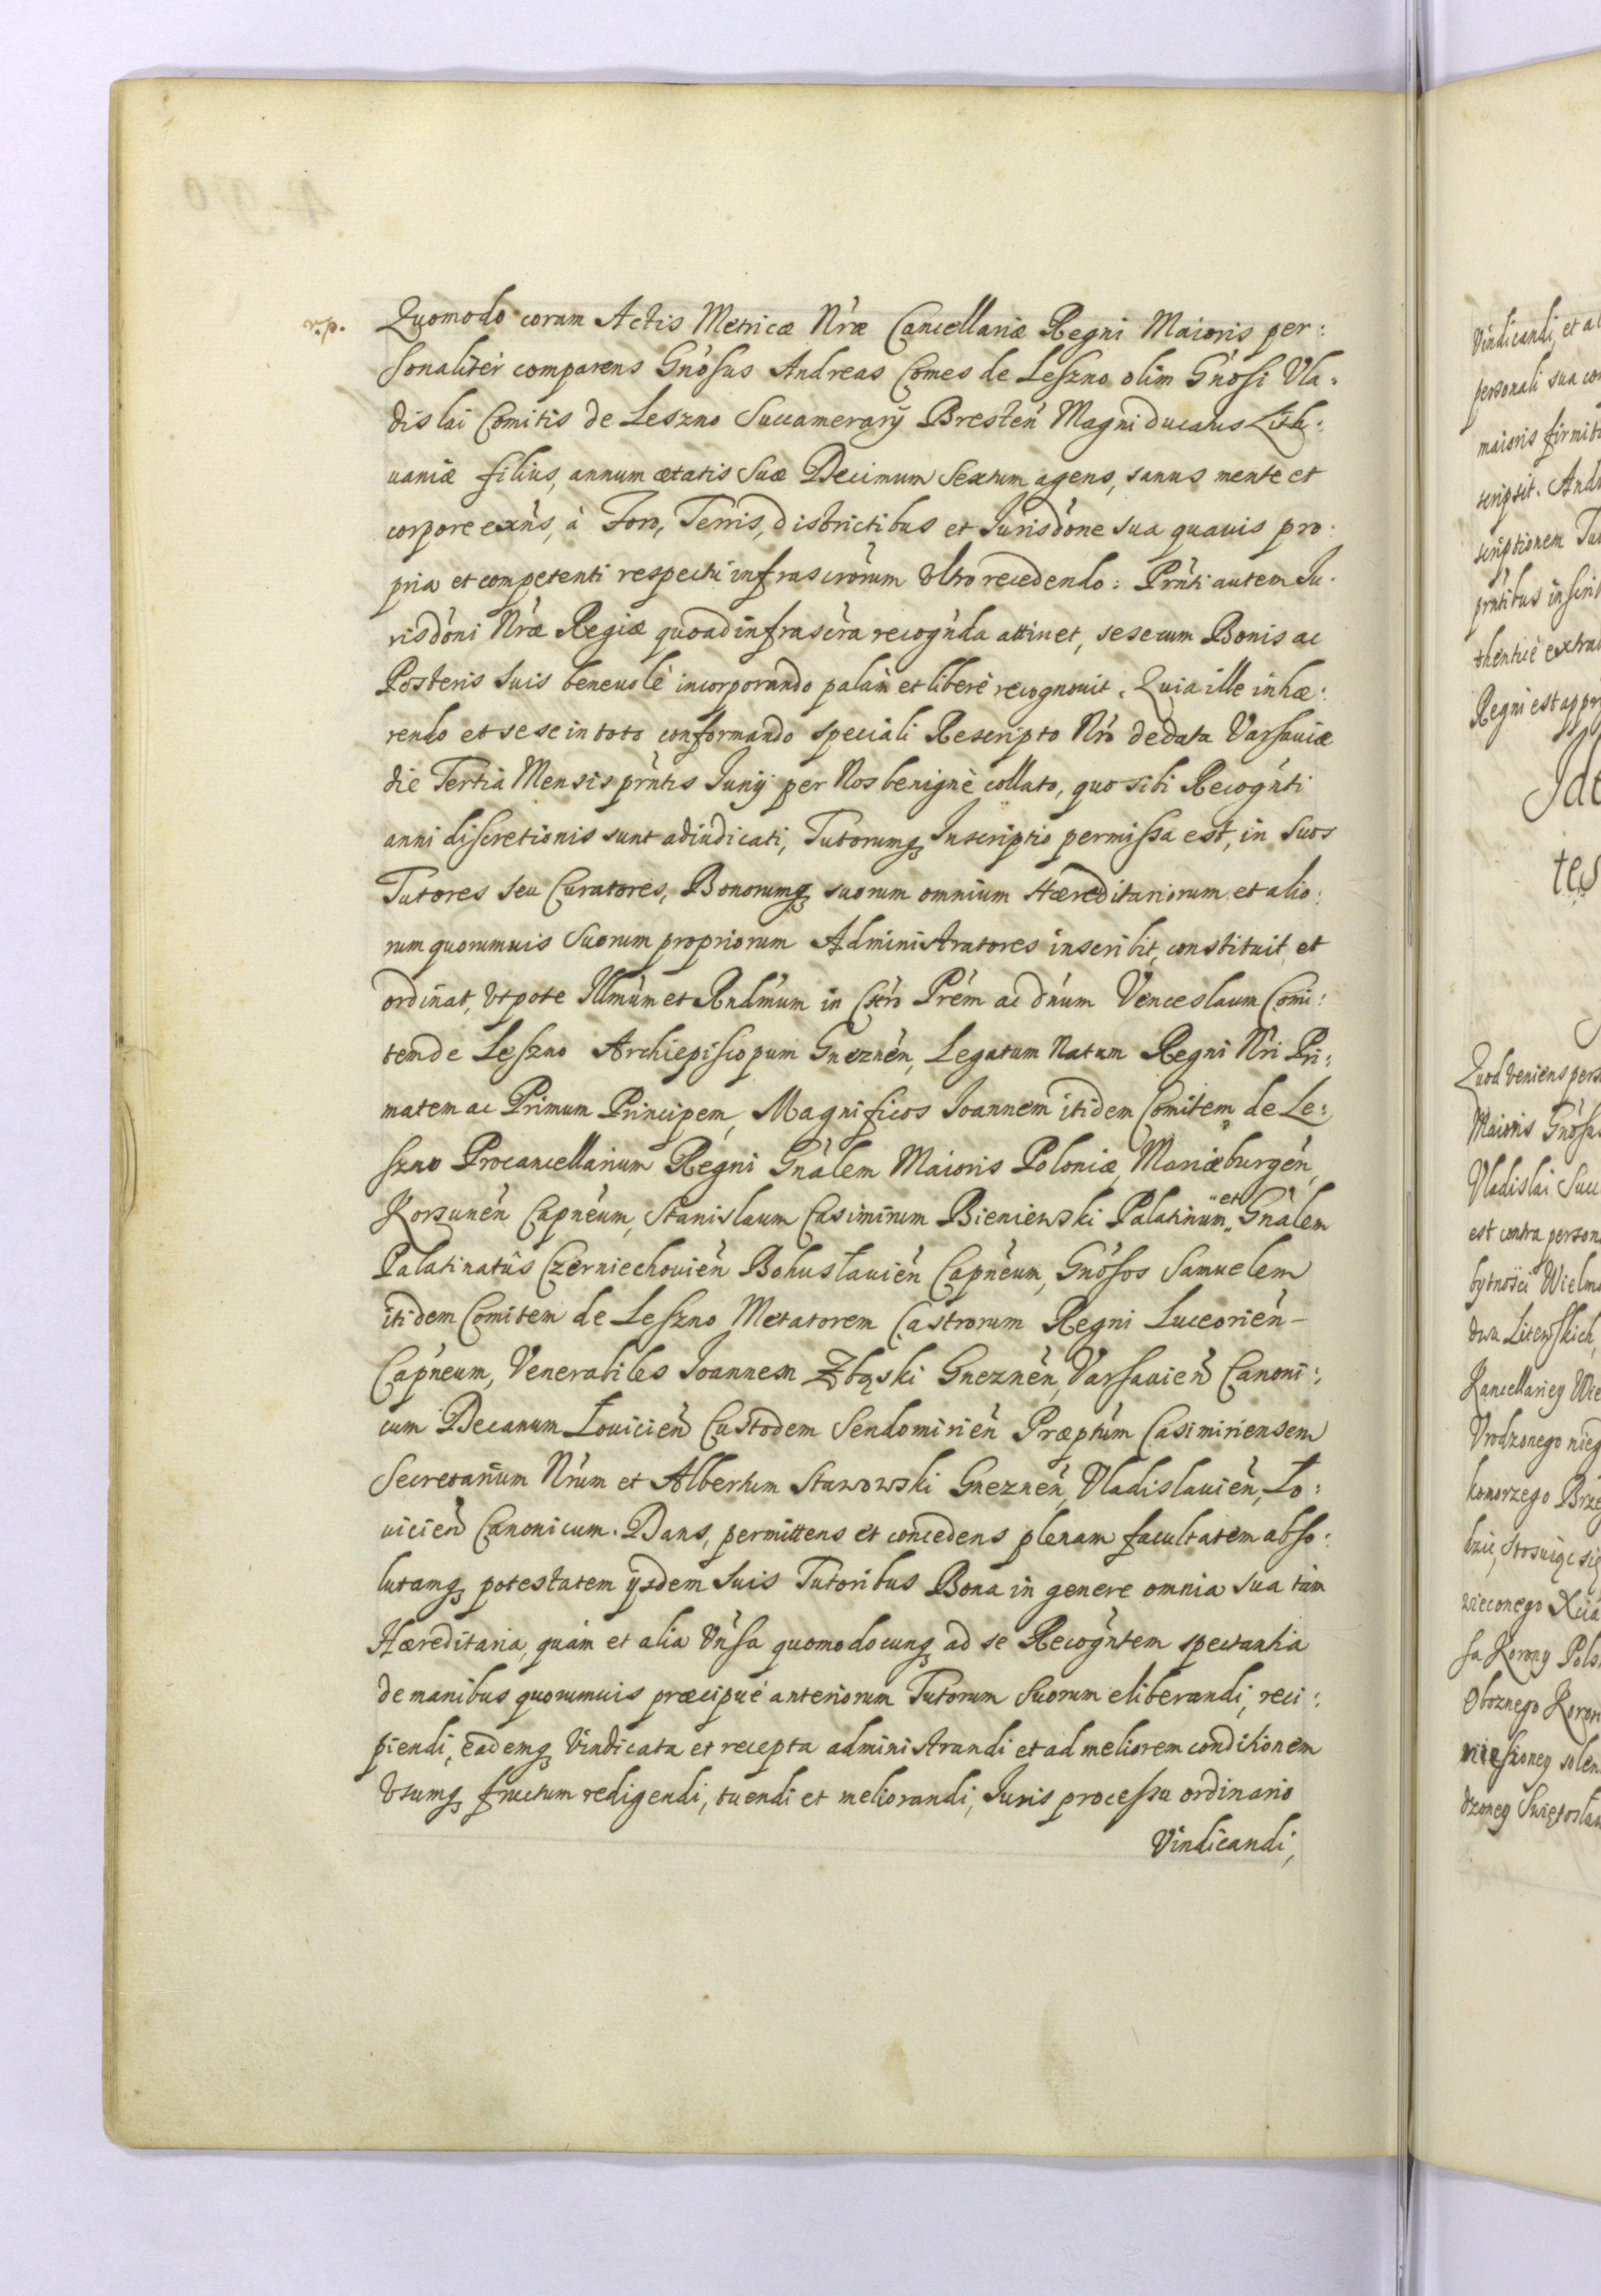 r.p.
Quomodo coram Actis Metricæ Nr̀æ Cancellariæ Regni Maioris per:
sonalitèr comparens Gnòsus Andreas Comes de Leszno olim Gnòsi Vla:
dislai Comitis de Leszno Succamerarÿ Bresteǹ Magni Ducatus Lith:
uaniæ filius, annum ætatis suæ Decimum Sextum agens, sanus mente et
corpore exǹs, à Foro, Terris, districtibus et Jurisdòne sua quauis pro:
pria et competenti respectu infrascròrum Vltro recedendo: Prǹti autem Ju:
risdòni Nr̀æ Regiæ quoad infrascr̀a recogǹda attinet, sese cum Bonis ac
Posteris suis beneuolè incorporando palàm et liberè recognouit. Quia ille inhæ:
rendo et sese in toto conformando speciali Rescripto Nrò de data Varsauiæ
die Tertia Mensis prǹtis Junÿ per Nos benignè collato, quo sibi Recogǹti
anni discretionis sunt adiudicati, Tutorumq3 Inscriptio permissa est, in suos
Tutores seu Curatores, Bonorumq3 suorum omnium Hæreditariorum et alio:
rum quorumuis suorum propriorum Administratores inscribit, constituit, et
ordinat, Vtpote Illmùm et Rndmùm in Chrò Prèm ac dnùm Venceslaum Comi:
tem de Leszno Archiepiscopum Gnezneǹ, Legatum Natum Regni Nrì Pri:
matem ac Primum Principem, Magnificos Joannem itidem Comitem de Le:
szno Procancellarium Regni Gnàlem Maioris Poloniæ, Mariæburgeǹ,
Korsuneǹ Capneùm, Stanislaum Casimirum Bieniewski Palatinum "et" Gnàlem
Palatinatûs Czerniechouieǹ Bohuslauieǹ Capneùm, Gnòsos Samuelem
itidem Comitem de Leszno Metatorem Castrorum Regni Luceorieǹ-
Capneùm, Venerabiles Joannem Zbąski Gnezneǹ, Varsauieǹ Canoni:
cum Decanum Łouicieǹ Custodem Sendomirieǹ Præptùm Casimiriensem
Secretarium Nrùm et Albertum Stawowski Gnezneǹ, Vladislauieǹ, Ło:
uicieǹ Canonicum. Dans, permittens et concedens plenam facultatem abso:
lutamq3 potestatem ÿsdem suis Tutoribus Bona in genere omnia sua tàm
Hæreditaria, quàm et alia Vnsà quomodocunq3 ad se Recogǹtem spectantia
de manibus quorumuis præcipuè anteriorum Tutorum suorum eliberandi, reci:
piendi, eademq3 Vindicata et recepta administrandi et ad meliorem conditionem
Vsumq3 fructum redigendi, tuendi et meliorandi, Juris processu ordinario
Vindicandi,
Vindicandi, et al
personali sua co
maioris firmit
scripsit. And
scriptionem Tu
prǹtibus inscrib
thenticè extra
Regni est appr
tes
Quod Veniens pers
Maioris Gnòsu
Vladislai Succ
est contra person
bytnosci Wielm
dwa Litewskich,
Kancellariey Wie
Vrodzonego nieg
komorzego Brze
dzie, stosuiąc się
sa Korony Pols
Oboznego Koron
dzoney Swiętosław